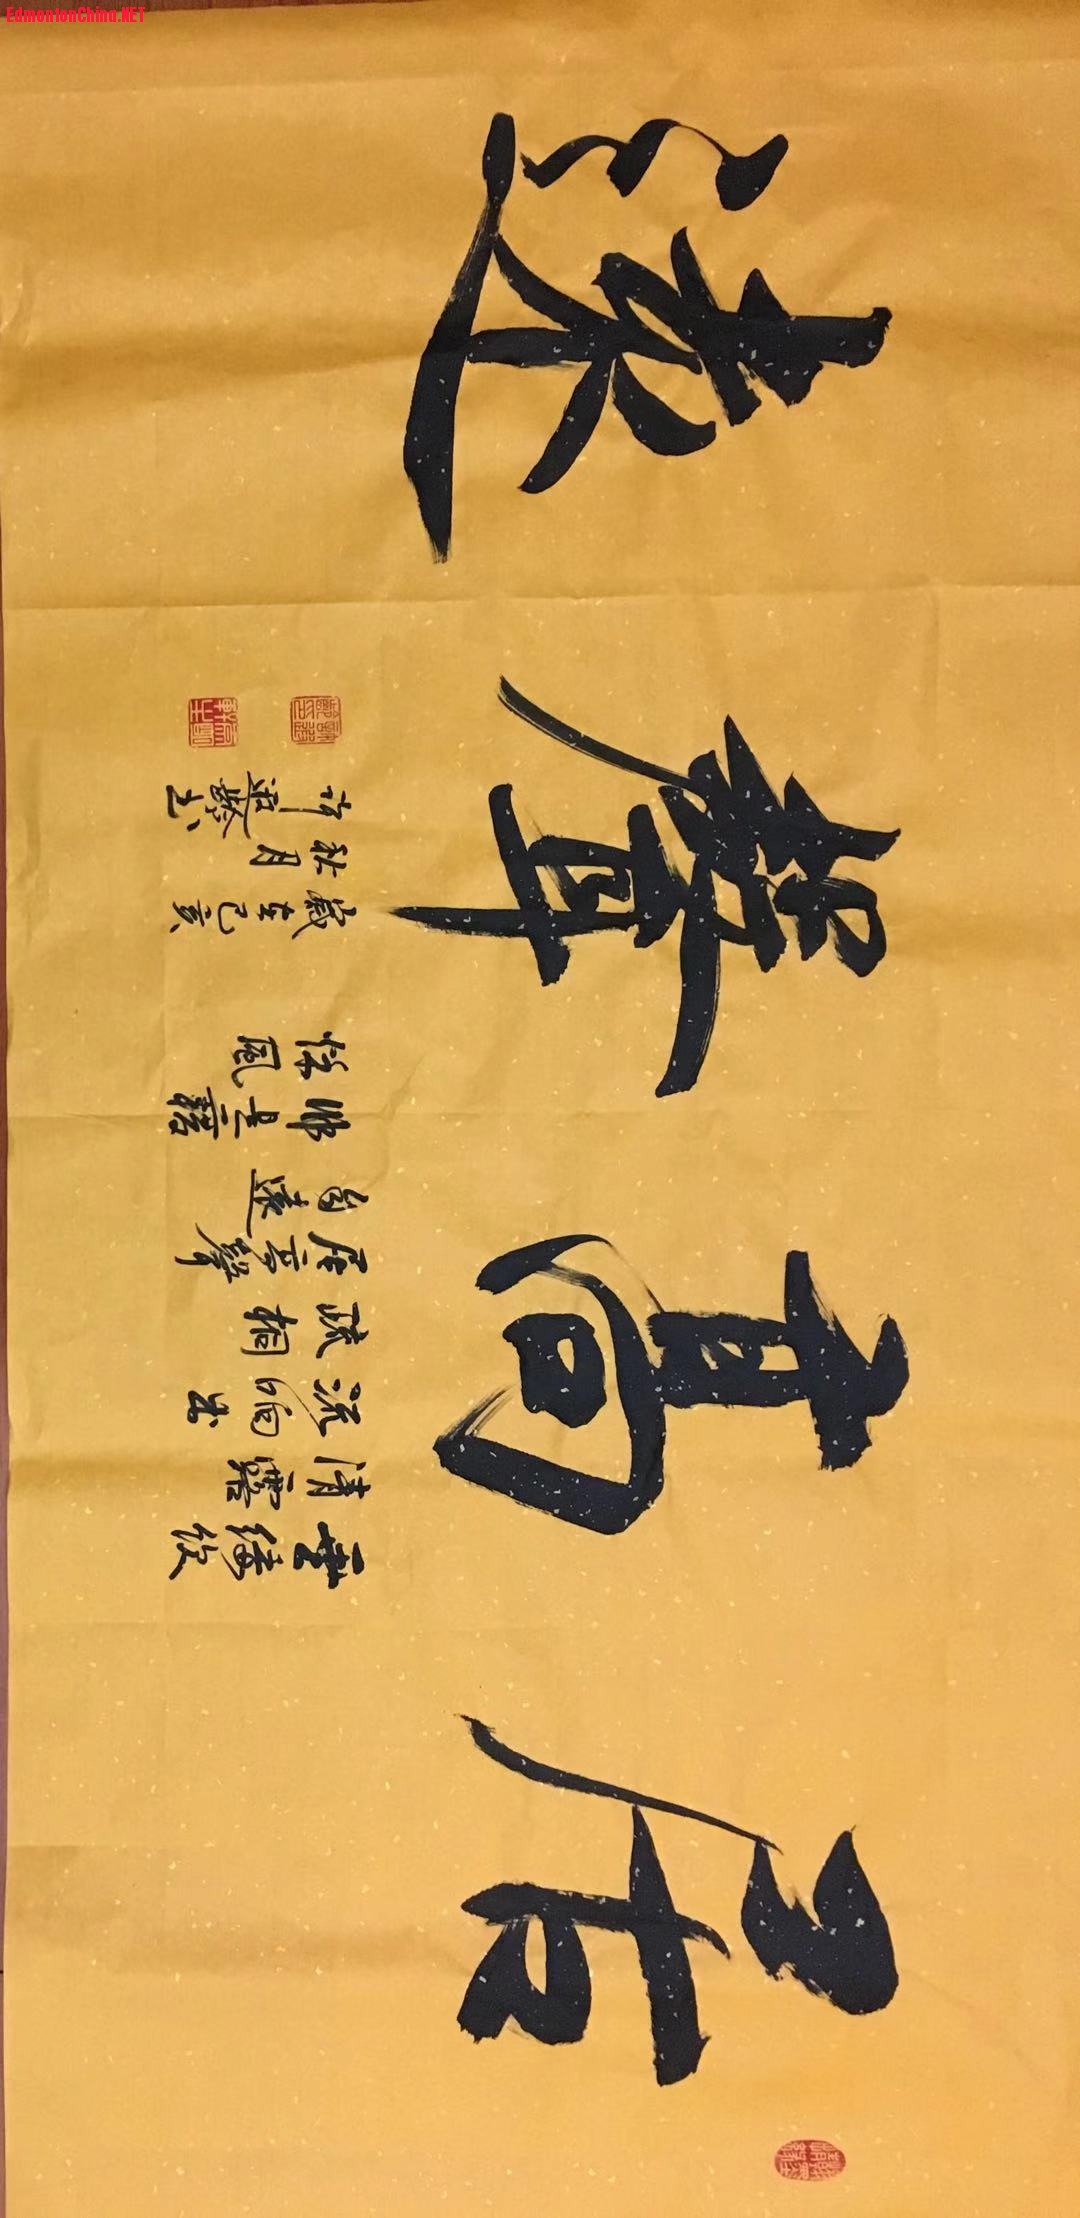 EdmontonChina.NET
居高聲遠
垂緌飲
清露
流響出
疏桐
居高聲
自遠
非是藉
秋風
歲在己亥
秋月